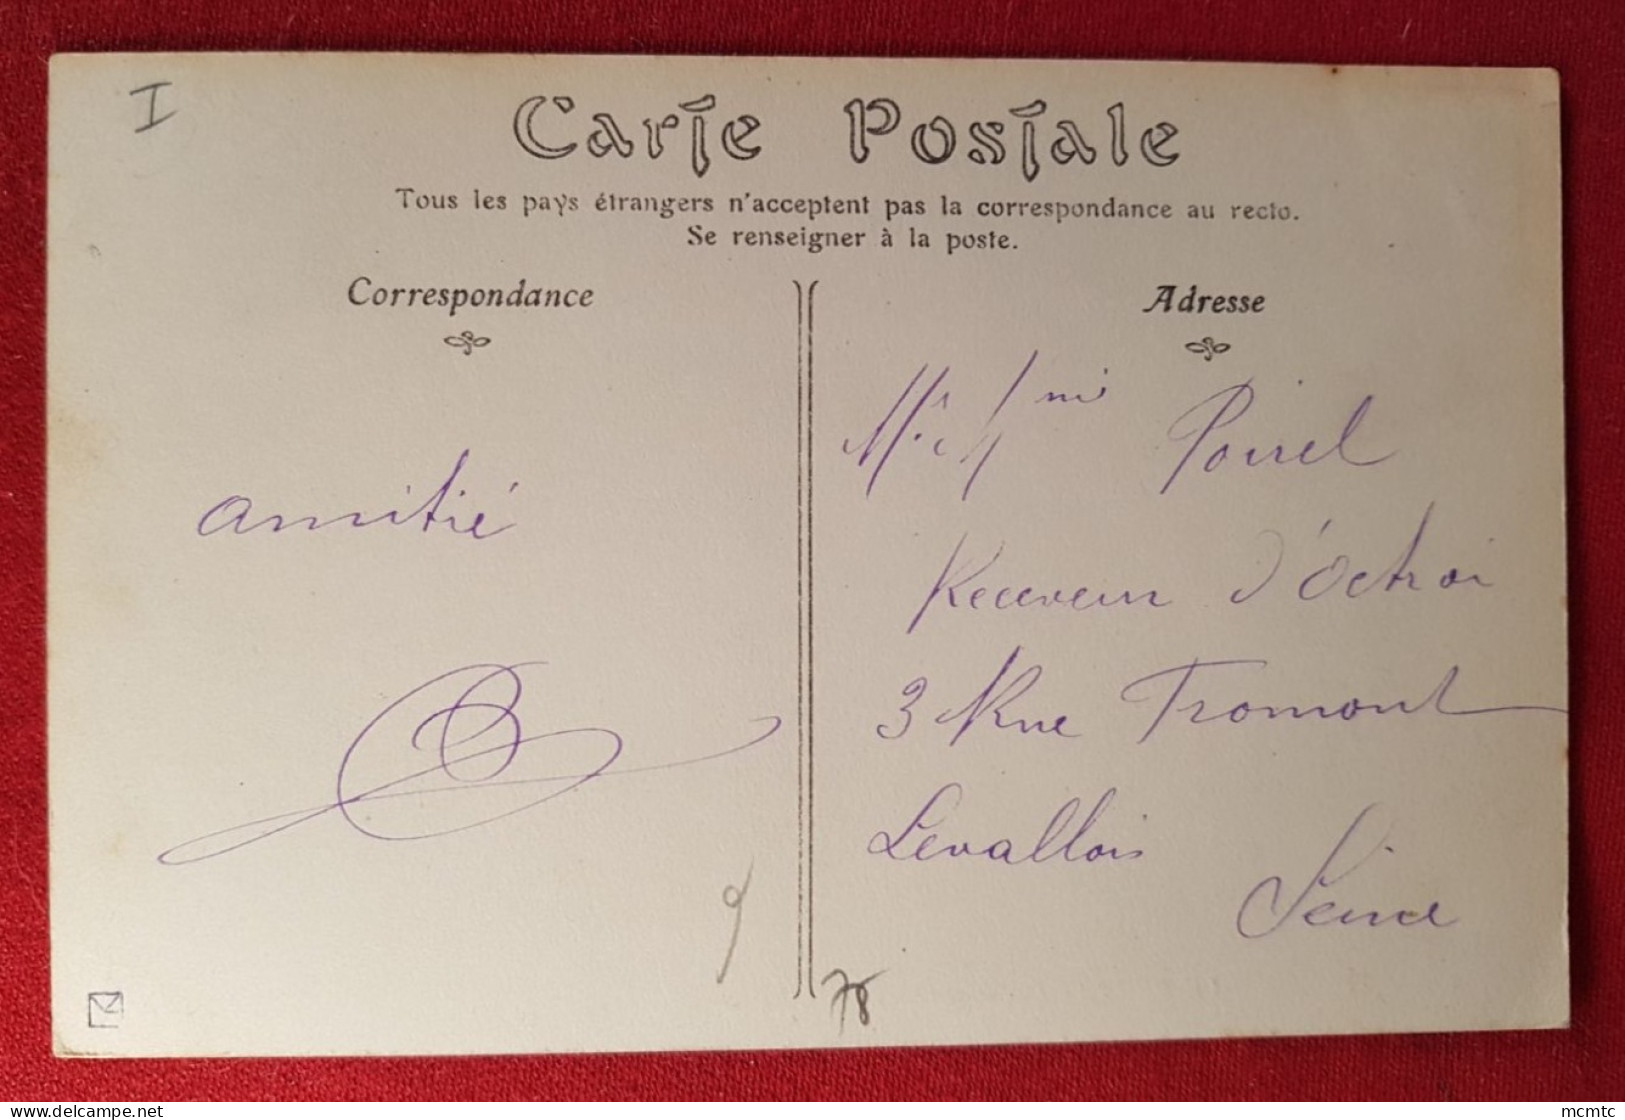 I
Carte Postale
Tous les pays étrangers n'acceptent pas la correspondance au recto.
Se renseigner à la poste.
Correspondance
amitié
9
Adresse
Poirel
Receveur d'Octroi
3 Rue Tromont
Levallois
Seine
78
Delcampe.net
mcmtc